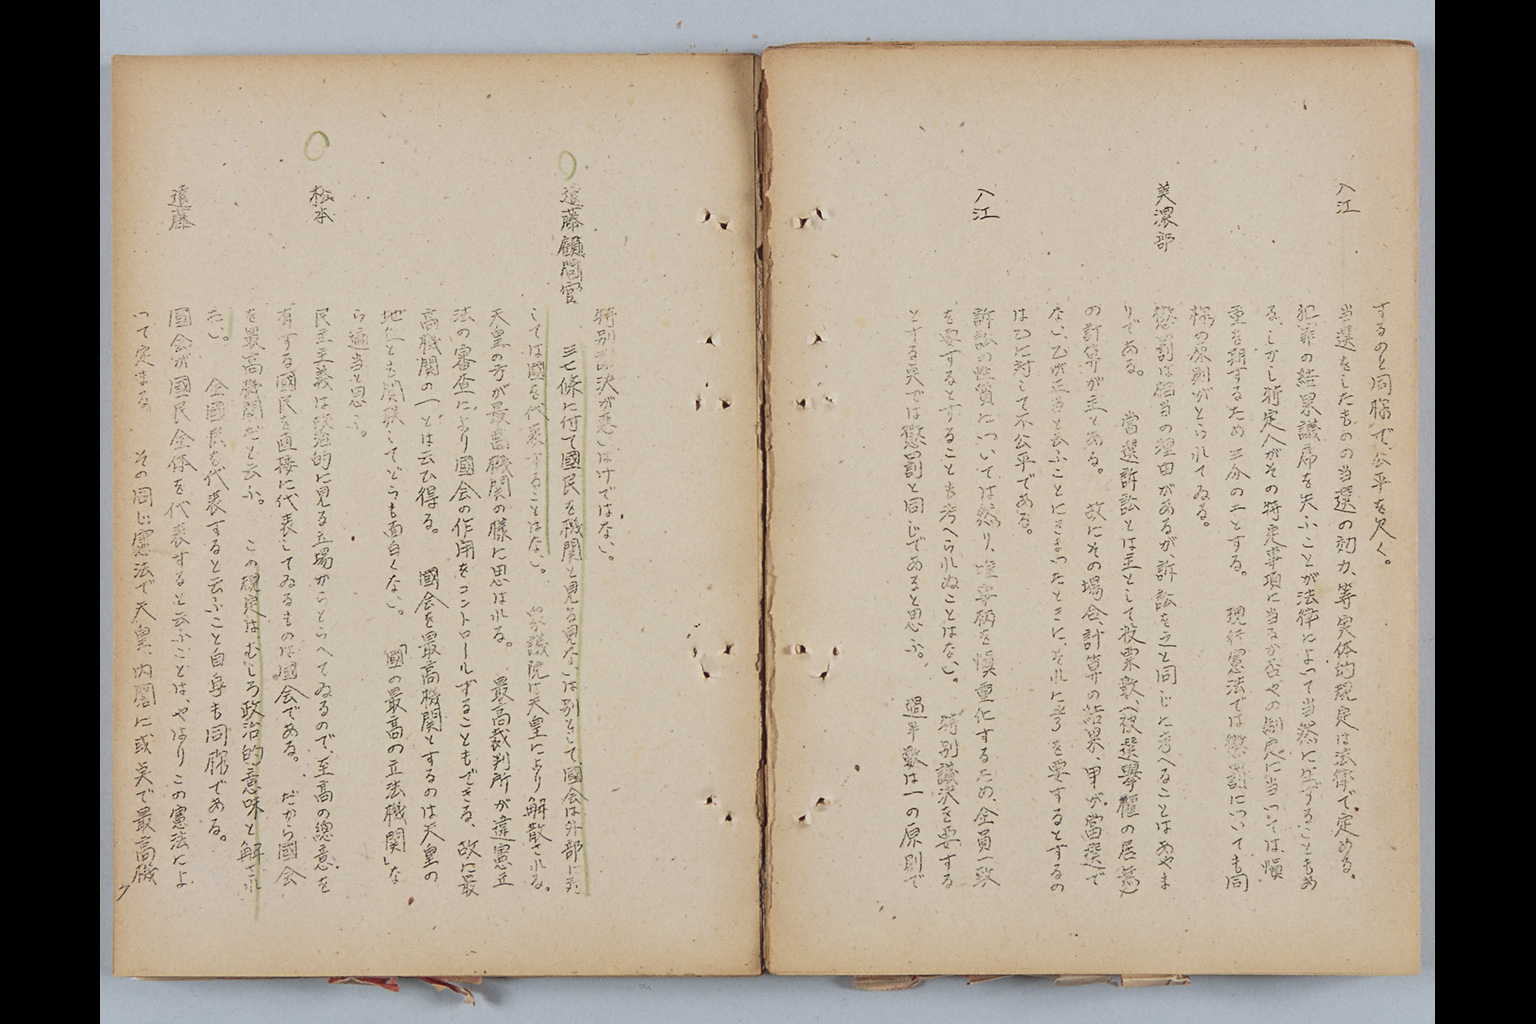 するのと同様で、公平を欠く。
入江
当選をしたものの当選の効力、等実体的規定は法律で定める。
犯罪の結果議席を失ふことが法律によって当然に生ずることもあ
る、しかし特定人がその特定事項に当るか否やの判定に当いては、慎
重を期するため三分の二とする。　現行憲法では懲罰についても同
様の原則がとられてゐる。
美濃部
懲罰は相当の理由があるが、訴訟を之と同じに考へることはあやま
りである。　当選訴訟とは主として投票数、被選挙権の有無
の計算が主である。　故にその場合計算の結果、甲が當選で
ない、乙が正当と云ふことにきまったときに、それに2/3を要するとするの
は乙に対して不公平である。
入江
訴訟の性質については然り、唯事柄を慎重化するため、全員一致
を要するとすることも考へられぬことはない。　特別議決を要する
とする点では懲罰と同じであると思ふ。　過半数は一の原則で
特別議決が悪いわけではない。
遠藤顧問官
三七條に付て國民を機関と見る見ないは別として國会は外部に対
しては國を代表することはない。　衆議院は天皇により解散される。
天皇の方が最高機関の様に思はれる。　最高裁判所が違憲立
法の審査により國会の作用をコントロールすることもできる、故に最
高機関の一とは云ひ得る。　國会を最高機関とするのは天皇の
地位とも関係してどうも面白くない。　「國の最高の立法機関」な
ら適当と思ふ。
松本
民主主義は政治的に見る立場からとらへてゐるので、至高の總意を
有する國民を直接に代表してゐるものは國会である。　だから國会
を最高機関だと云ふ。　この規定はむしろ政治的意味と解され
たい。　全國民を代表すると云ふこと自身も同様である。
遠藤
國会が國民全体を代表すると云ふことは、やはりこの憲法によ
って定まる。　その同じ憲法で天皇、内閣に或点で最高機